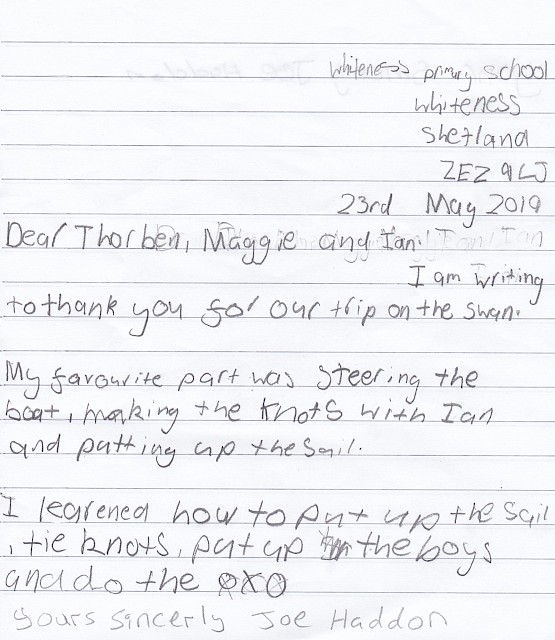 whiteness primary school
whiteness
Shetland
ZEZ 9LJ
23rd May 2019
Dear Thorben, Maggie and Ian
I am writing
to thank you for our trip on the swan.
My favourite part was Steering the
boat, making the knots with Ian
and putting up the Sail.
I learened how to put up the Sail
, tie knots, put up the boys
and do the oxo
yours sincerly Joe Haddon